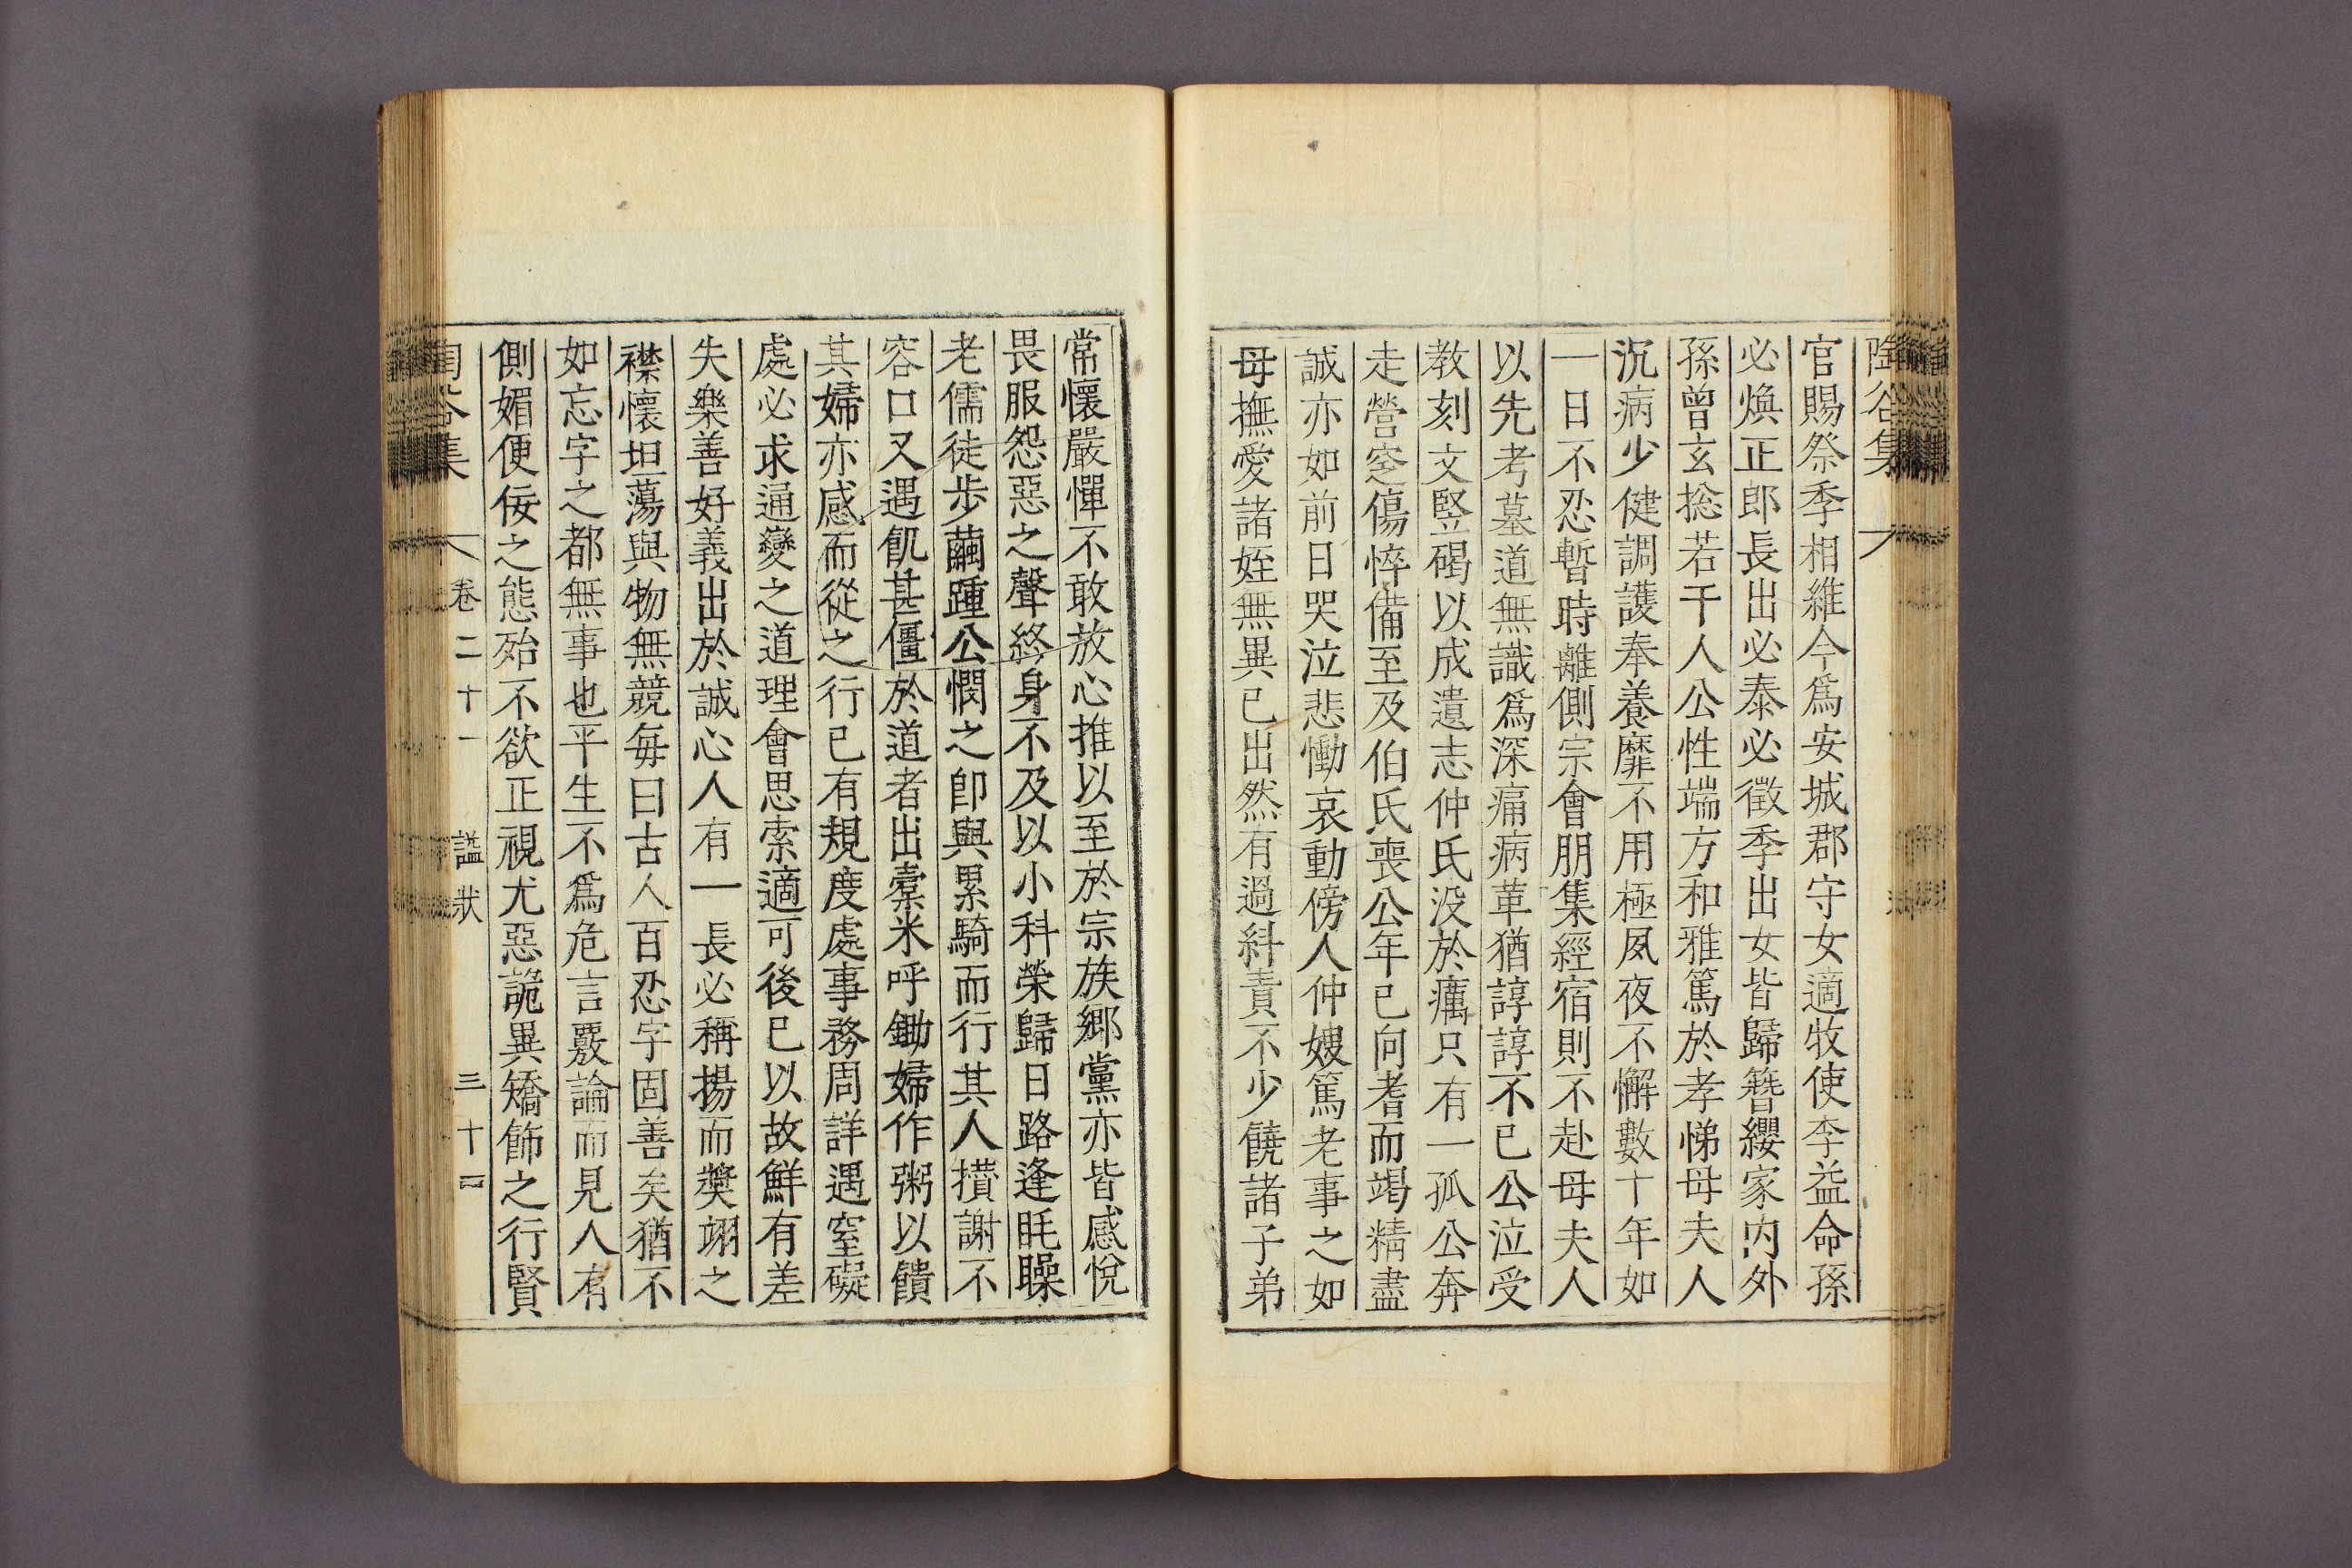 陶谷集
官賜祭季相維今爲安城郡守女適牧使李益命孫
必煥正郎長出必泰必徵季出女皆歸簪纓家内外
孫曾玄捴若干人公性端方和雅篤於孝悌母夫人
沉病少健調護奉養靡不用極夙夜不懈數十年如
一日不忍暫時離側宗會朋集經宿則不赴母夫人
以先考墓道無識爲深痛病革猶諄諄不已公泣受
教刻文竪碣以成遺志仲氏没於癘只有一孤公奔
走營窆傷悴備至及伯氏喪公年已向耆而竭精盡
誠亦如前日哭泣悲慟哀動傍人仲嫂篤老事之如
母撫愛諸姪無異已出然有過糾責不少饒諸子弟
常懷嚴憚不敢放心推以至於宗族鄕黨亦皆感悅
畏服怨惡之聲終身不及以小科榮歸日路逢眊矂
老儒徒步繭踵公憫之卽與累騎而行其人攢謝不
容口又遇飢甚僵於道者出槖米呼鋤婦作粥以饋
其婦亦感而從之行已有規度處事務周詳遇窒礙
處必求通變之道理會思索適可後已以故鮮有差
失樂善好義出於誠心人有一長必稱揚而奬翊之
襟懷坦蕩與物無競每曰古人百忍字固善矣猶不
如忘字之都無事也平生不爲危言覈論而見人有
側媚便佞之態殆不欲正視尤惡詭異矯飾之行賢
陶谷集 卷二十一 諡狀 三十四